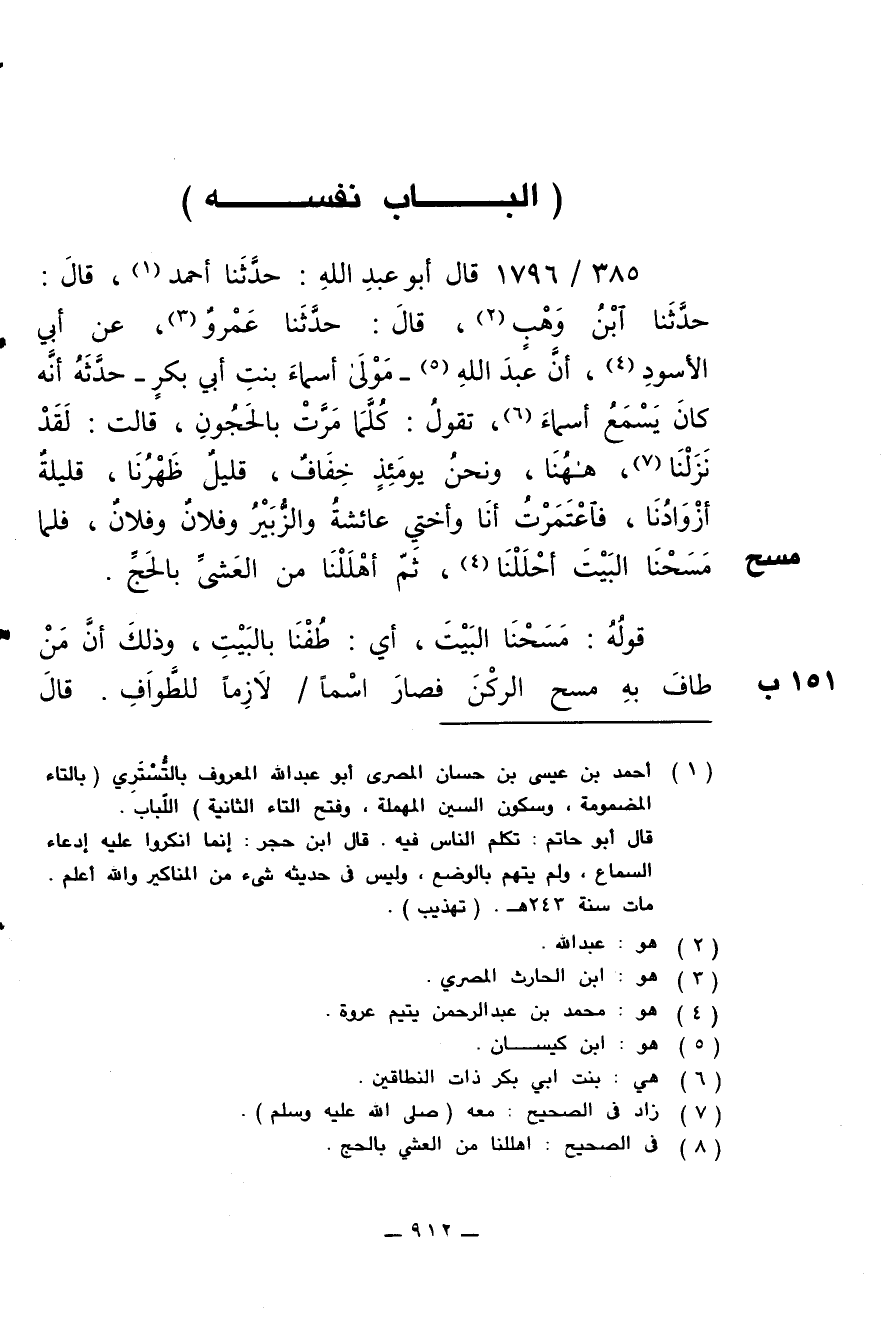 ( البـــاب نفســـــه )
٣٨٥ / ١٧٩٦ قال أبو عبدِ اللهِ : حدَّثَنا أحمد (١) ، قالَ :
حدَّثَنا ٱبْنُ وَهْبٍ (٢) ، قالَ : حدَّثَنا عَمْروٌ (٣)، عن أبي
الأسودِ (٤) ، أنَّ عبدَ اللهِ (٥) ـ مَوْلَىٰ أسماءَ بنتِ أبي بكرٍ ـ حدَّثَهُ أنَّه
كانَ يَسْمَعُ أسماءَ (٦)، تقولُ : كُلَّمَا مَرَّتْ بالحَجُونِ ، قالت : لَقَدْ
نَزَلْنَا (٧)، هـٰهُنَا ، ونحنُ يومَئِذٍ خِفَافٌ ، قليلٌ ظَهْرُنَا ، قليلةٌ
أزْوَادُنَا ، فٱعْتَمَرْتُ أنَا وأختي عائشةُ والزُّبَيْرُ وفلانٌ وفلانٌ ، فلما
مسح مَسَحْنَا البَيْتَ أحْلَلْنَا (٤) ، ثَمّ أهْلَلْنَا من العَشيِّ بالحَجِّ .
قولُهُ : مَسَحْنَا البَيْتَ ، أي : طُفْنَا بالبَيْتِ ، وذلكَ أنَّ مَنْ
١٥١ ب طافَ بهِ مسح الركْنَ فصارَ اسْماً / لَازِماً للطَّوافِ . قالَ
( ١ ) أحمد بن عيسى بن حسان المصرى أبو عبدالله المعروف بالتُّسْتَرِي ( بالتاء
المضمومة ، وسكون السين المهملة ، وفتح التاء الثانية ) اللّباب .
قال أبو حاتم : تكلم الناس فيه . قال ابن حجر : إنما انكروا عليه إدعاء
السماع ، ولم يتهم بالوضع ، وليس فى حديثه شىء من المناكير والله أعلم .
مات سنة ٢٤٣هـ . ( تهذيب ) .
( ٢ ) هو : عبدالله .
( ٣ ) هو : ابن الحارث المصري .
( ٤ ) هو : محمد بن عبدالرحمن يتيم عروة .
( ٥ ) هو : ابن كيســـان .
( ٦ ) هي : بنت ابي بكر ذات النطاقين .
( ٧ ) زاد فى الصحيح : معه ( صلى الله عليه وسلم ) .
( ٨ ) فى الصحيح : اهللنا من العشي بالحج .
ـ ٩١٢ ـ